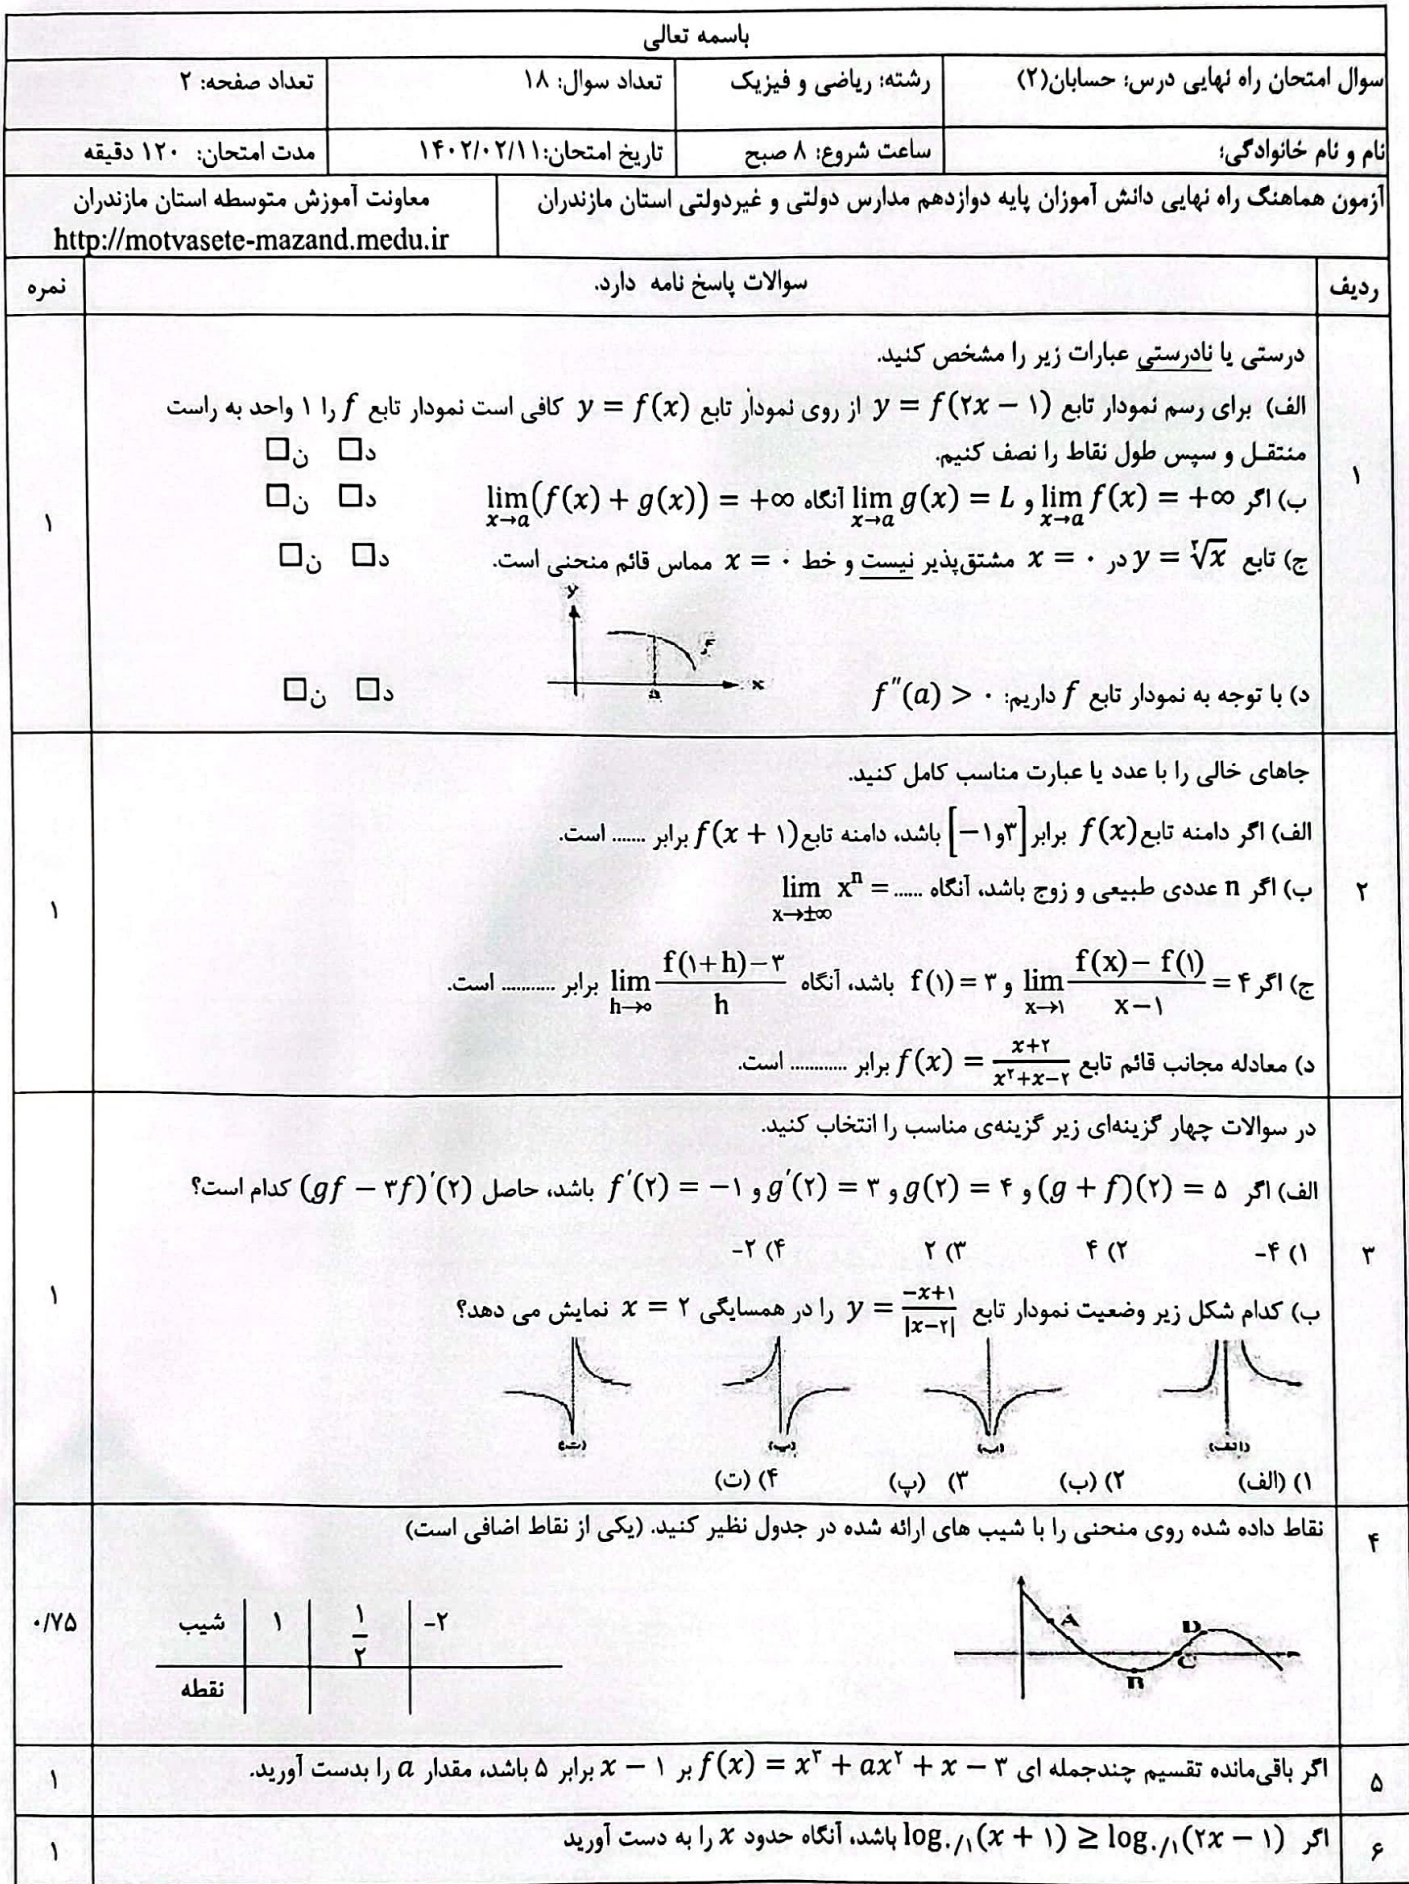 باسمه تعالی
سوال امتحان راه نهایی درس: حسابان(۲) رشته: ریاضی و فیزیک تعداد سوال: ۱۸ تعداد صفحه: ۲
نام و نام خانوادگی: ساعت شروع: ۸ صبح تاریخ امتحان:۱۴۰۲/۰۲/۱۱ مدت امتحان: ۱۲۰ دقیقه
آزمون هماهنگ راه نهایی دانش آموزان پایه دوازدهم مدارس دولتی و غیردولتی استان مازندران معاونت آموزش متوسطه استان مازندران
http://motvasete-mazand.medu.ir
ردیف سوالات پاسخ نامه دارد. نمره
۱
درستی یا نادرستی عبارات زیر را مشخص کنید.
الف) برای رسم نمودار تابع y = f(۲x − ۱) از روی نمودار تابع y = f(x) کافی است نمودار تابع f را ۱ واحد به راست
منتقـل و سپس طول نقاط را نصف کنیم. د□ ن□
ب) اگر lim x→a f(x) = +∞ و lim x→a g(x) = L آنگاه lim x→a (f(x) + g(x)) = +∞ د□ ن□
ج) تابع y = ∛x در x = ۰ مشتق‌پذیر نیست و خط x = ۰ مماس قائم منحنی است. د□ ن□
y
f
a x
د) با توجه به نمودار تابع f داریم: f″(a) > ۰ د□ ن□
۱
۲
جاهای خالی را با عدد یا عبارت مناسب کامل کنید.
الف) اگر دامنه تابع f(x) برابر [−۱و۳] باشد، دامنه تابع f(x + ۱) برابر ....... است.
ب) اگر n عددی طبیعی و زوج باشد، آنگاه lim x→±∞ xⁿ = ......
ج) اگر lim x→۱ (f(x) − f(۱))/(x − ۱) = ۴ و f(۱) = ۳ باشد، آنگاه lim h→∞ (f(۱+h) − ۳)/h برابر ........... است.
د) معادله مجانب قائم تابع f(x) = (x+۲)/(x²+x−۲) برابر ............ است.
۱
۳
در سوالات چهار گزینه‌ای زیر گزینه‌ی مناسب را انتخاب کنید.
الف) اگر (g + f)(۲) = ۵ و g(۲) = ۴ و g′(۲) = ۳ و f′(۲) = −۱ باشد، حاصل (gf − ۳f)′(۲) کدام است؟
۱) −۴ ۲) ۴ ۳) ۲ ۴) −۲
ب) کدام شکل زیر وضعیت نمودار تابع y = (−x+۱)/|x−۲| را در همسایگی x = ۲ نمایش می دهد؟
(الف) (ب) (پ) (ت)
۱) (الف) ۲) (ب) ۳) (پ) ۴) (ت)
۱
۴
نقاط داده شده روی منحنی را با شیب های ارائه شده در جدول نظیر کنید. (یکی از نقاط اضافی است)
A B C D
شیب ۱ ۱/۲ −۲
نقطه
۰/۷۵
۵ اگر باقی‌مانده تقسیم چندجمله ای f(x) = x³ + ax² + x − ۳ بر x − ۱ برابر ۵ باشد، مقدار a را بدست آورید. ۱
۶ اگر log۰/۱(x + ۱) ≥ log۰/۱(۲x − ۱) باشد، آنگاه حدود x را به دست آورید ۱